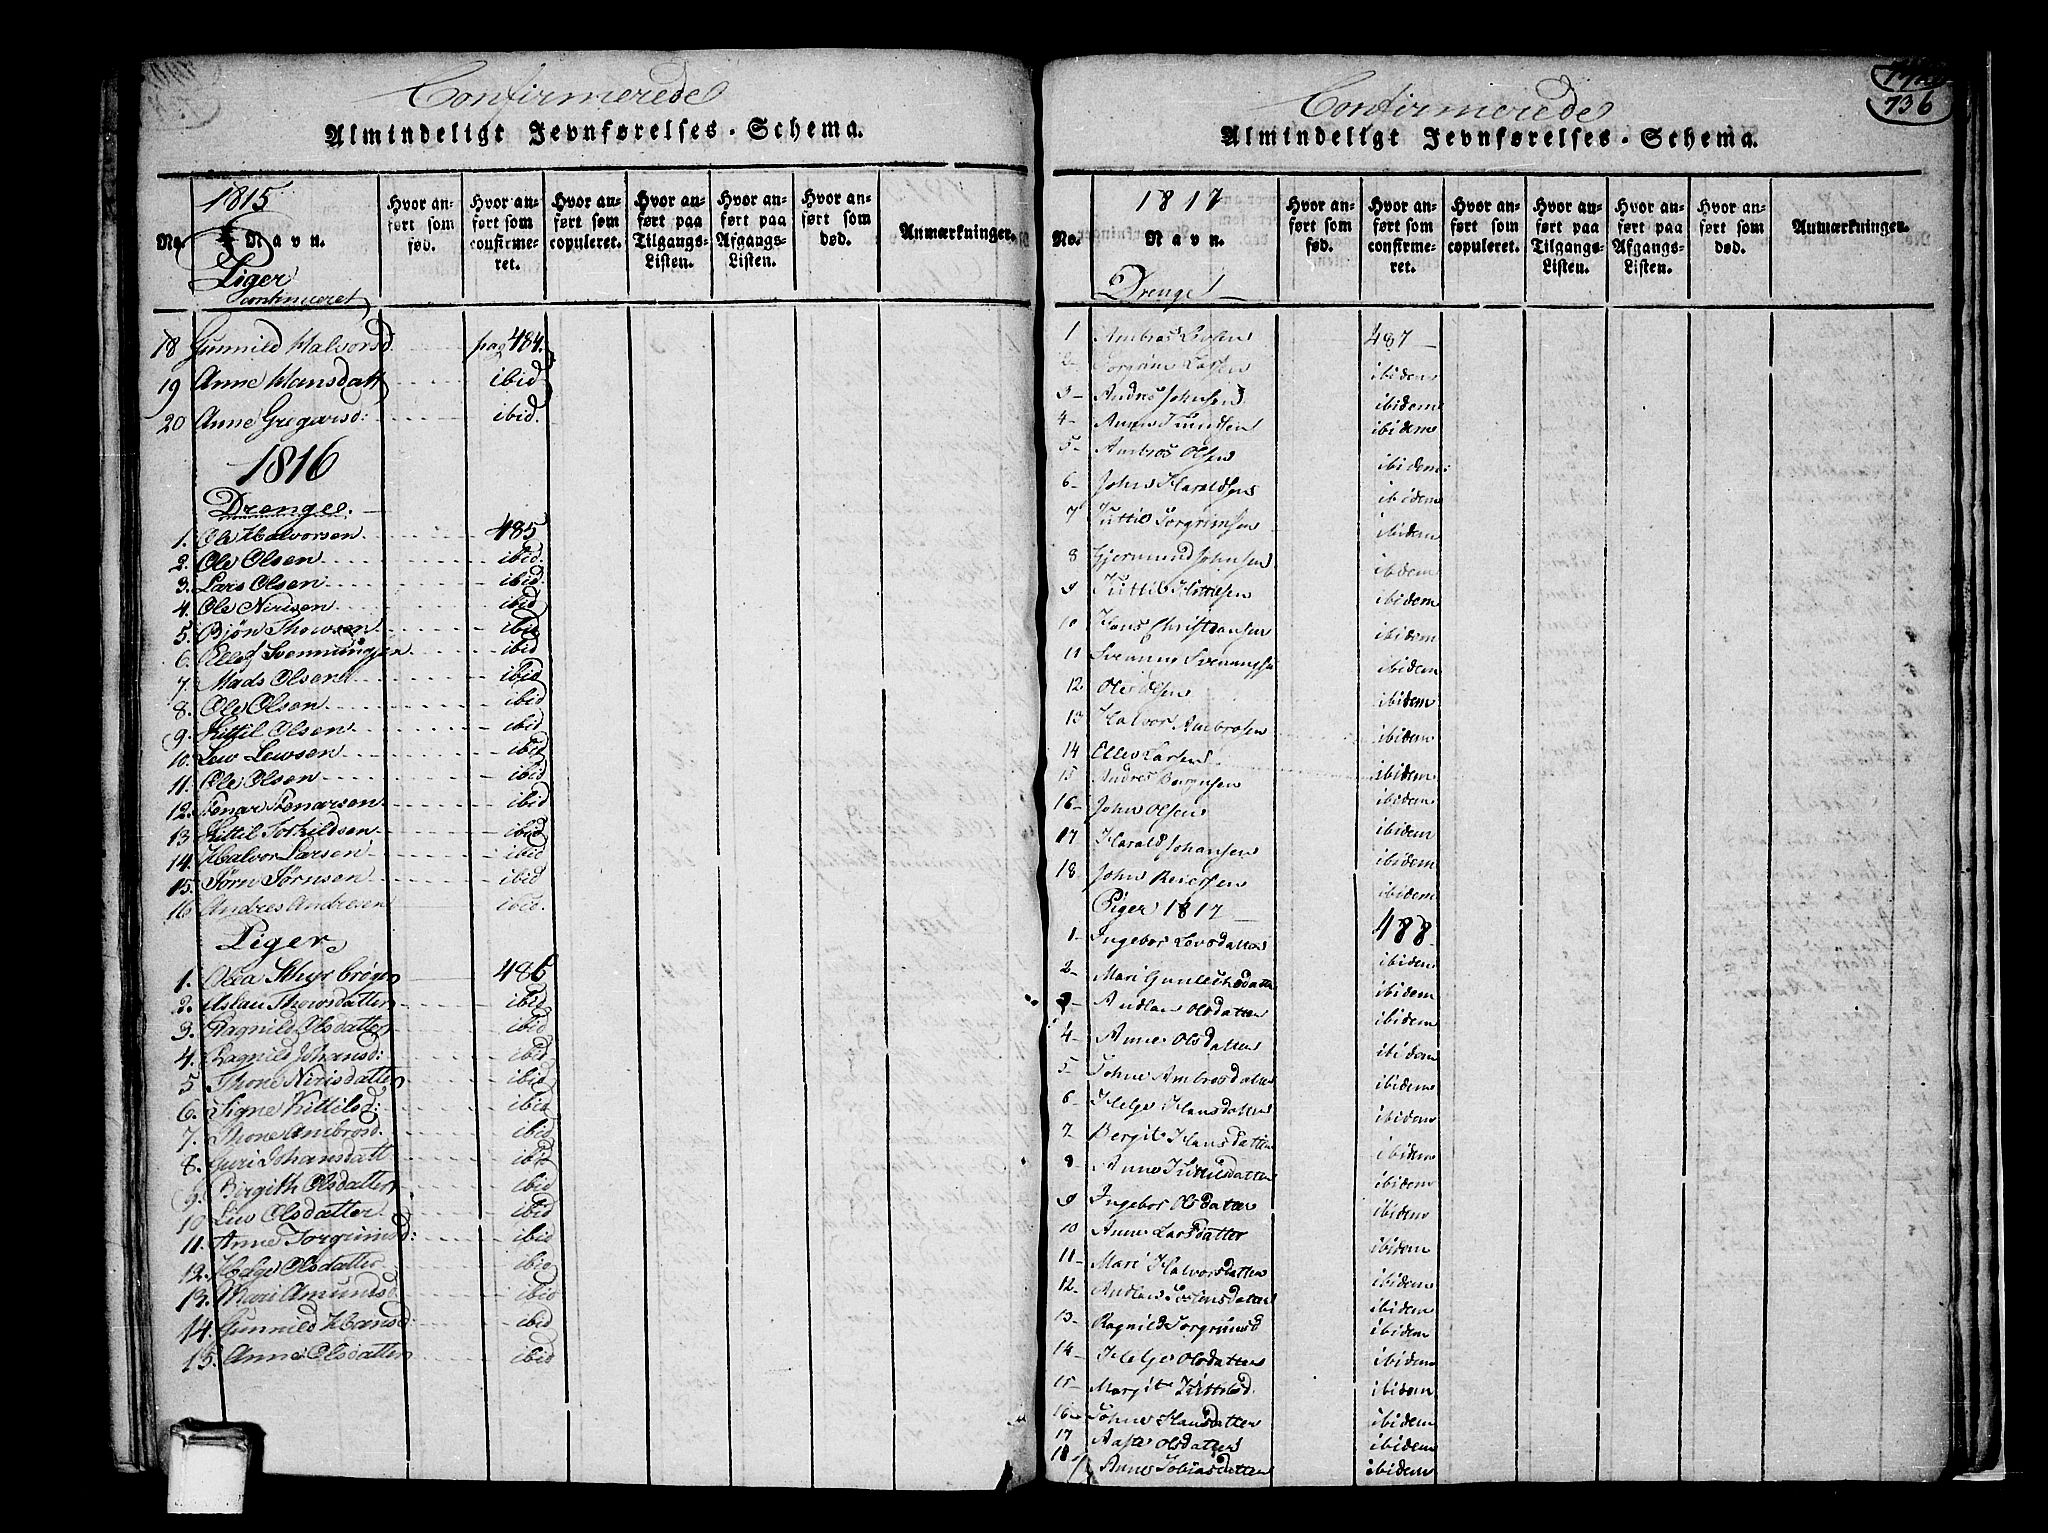 Confirmerede
Almindeligt Jevnførelses-Schema.
1815
No. Navn. Hvor anført som fød. Hvor anført som confirmeret. Hvor anført som copuleret. Hvor anført paa Tilgangs-Listen. Hvor anført paa Afgangs-Listen. Hvor anført som død. Anmærkninger.
Piger
continueret
18 Gunnild Halvorsd. pag 484.
19 Anne Hansdatt ibid
20 Anne Gregarsd: ibid.
1816
Drenge.
1. Ole Halvorsen 485
2. Ole Olsen ibid.
3. Lars Olsen ibid.
4. Ole Nirisen ibid
5. Bjön Thowsen ibid
6. Ellef Svennungsen ibid
7. Mads Olsen ibid
8. Ole Olsen ibid
9. Kittil Olsen ibid
10. Lew Lewsen ibid
11. Ole Olsen ibid
12. Stenar Stenarsen ibid
13 Kittil Torkildsen ibid
14. Halvor Larsen ibid
15. Jörn Jörnsen ibid
16 Andres Andresen ibid.
Piger
1. Olea Skyrbrögen 486
2. Aslau Thowsdatter ibid
3. Ragnild Olsdatter ibid
4. Ragnild Johansd: ibid
5 Thone Nirisdatter ibid
6. Signe Kittilsd: ibid
7. Thone Ambrosd. ibid
8. Guri Johansdatt ibid
9. Birgith Olsdatter ibid
10 Liv Olsdatter ibid
11. Anne Torgrimsd: ibid
12. Helge Olsdatter ibid
13. Mari Amundsd ibid
14. Gunnild Hansd: ibid
15. Anne Olsdatter ibid
736
Confirmerede
Almindeligt Jevnførelses-Schema.
1817
No. Navn. Hvor anført som fød. Hvor anført som confirmeret. Hvor anført som copuleret. Hvor anført paa Tilgangs-Listen. Hvor anført paa Afgangs-Listen. Hvor anført som død. Anmærkninger.
Drenge
1 Ambros 487
2- Torgrim Larsen ibidem
3- Andres Johnsen ibidem
4- Knudsen ibidem
5- Ambros Olsen ibidem:
6- John Haraldsen ibidem
7 Kittil Torgrimsen ibidem
8 Gjermund Johnsen ibidem
9 Kittil Kittilsen ibidem
10 Hans Christiansen ibidem
11 Svennung Svennungsen ibidem
12 Ole Olsen ibidem
13 Halvor Ambrosen ibidem
14 Ellev Larsen ibidem
15 Andres ibidem
16- John Olsen ibidem
17 Harald Johansen ibidem
18. John Reiersen ibidem
Piger 1817
1- Ingebor Levsdatter 488
2- Mari Gunlechsdatter ibidem
3- Andlau Olsdatter ibidem
4- Anne Olsdatter ibidem
5- Tohne Ambrosdatter ibidem
6- Helge Hansdatter ibidem
7- Bergit Hansdatter ibidem
8 Anne Kittilsdatter ibidem
9 Ingebor Olsdatter ibidem
10 Anne Larsdatter ibidem
11- Mari Halvorsdatter ibidem
12. Andlau Tostensdatter ibidem
13- Ragnild Torgrimsd ibidem
14- Helge Olsdatter ibidem
15- Margit Kittilsd. ibidem
16- Tohne Hansdatter ibidem
17 Aaste Olsdatter ibidem
18 Anne Tobiasdatter ibidem